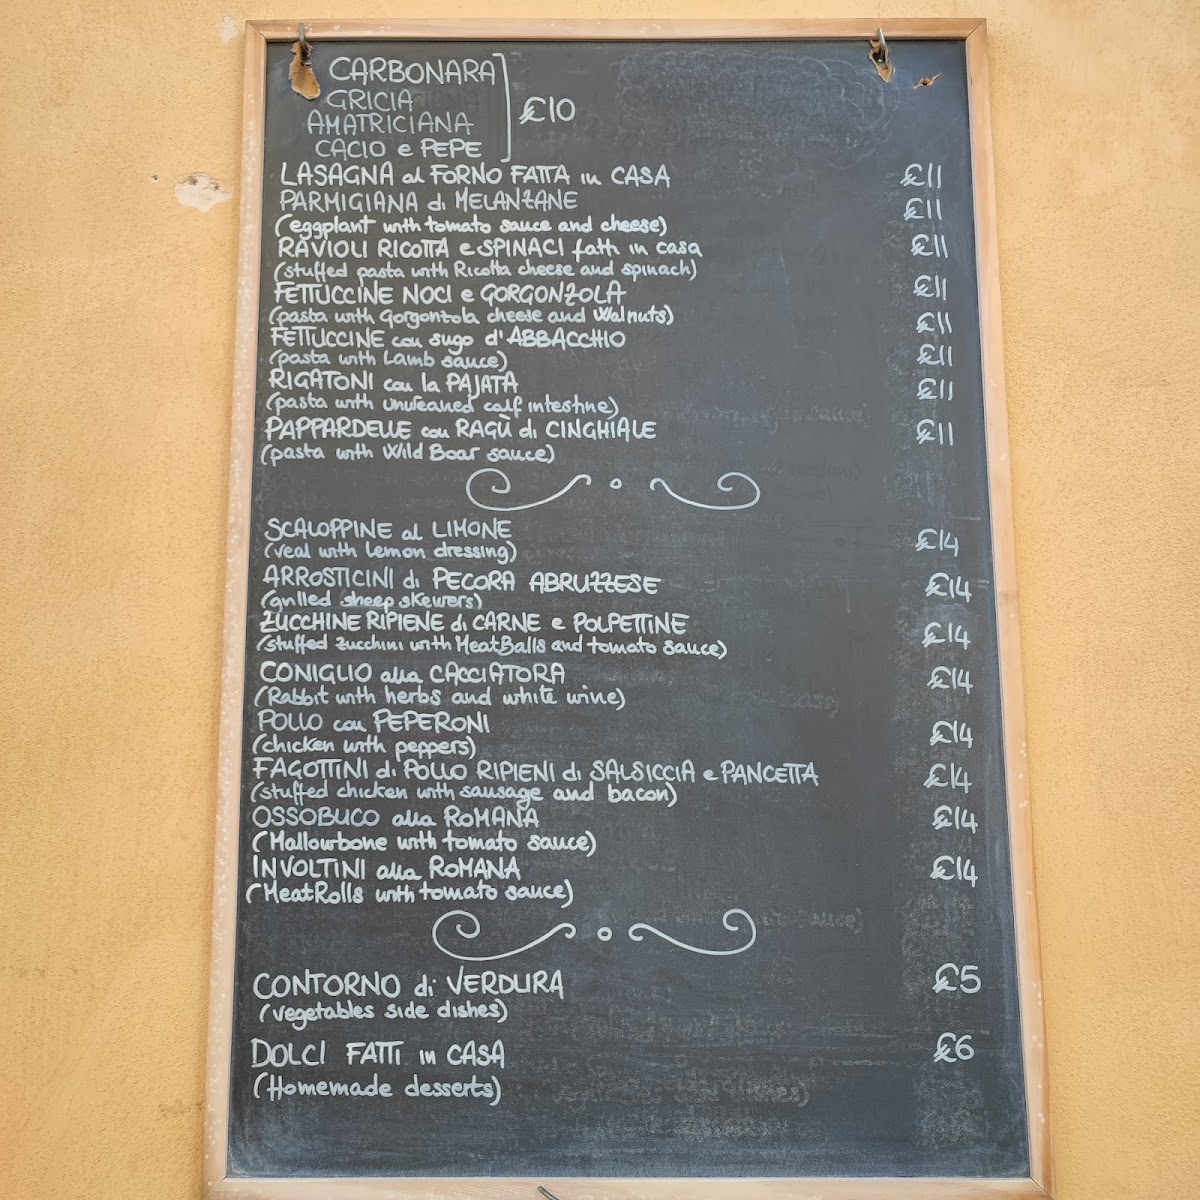 CARBONARA
GRICIA
AMATRICIANA
CACIO e PEPE
£10
LASAGNA al FORNO FATTA in CASA £11
PARMIGIANA di MELANZANE £11
(eggplant with tomato sauce and cheese)
RAVIOLI RICOTTA e SPINACI fatti in casa £11
(stuffed pasta with Ricotta cheese and spinach)
FETTUCCINE NOCI e GORGONZOLA £11
(pasta with Gorgonzola cheese and Walnuts) £11
FETTUCCINE con sugo d'ABBACCHIO
(pasta with Lamb sauce) £11
RIGATONI con la PAJATA £11
(pasta with unweaned calf intestine)
PAPPARDELLE con RAGÙ di CINGHIALE £11
(pasta with Wild Boar sauce)
SCALOPPINE al LIMONE
(veal with lemon dressing) £14
ARROSTICINI di PECORA ABRUZZESE £14
(grilled sheep skewers)
ZUCCHINE RIPIENE di CARNE e POLPETTINE £14
(stuffed zucchini with MeatBalls and tomato sauce)
CONIGLIO alla CACCIATORA £14
(Rabbit with herbs and white wine)
POLLO con PEPERONI £14
(chicken with peppers)
FAGOTTINI di POLLO RIPIENI di SALSICCIA e PANCETTA £14
(stuffed chicken with sausage and bacon)
OSSOBUCO alla ROMANA £14
(Mallowbone with tomato sauce)
INVOLTINI alla ROMANA £14
(MeatRolls with tomato sauce)
CONTORNO di VERDURA £5
(vegetables side dishes)
DOLCI FATTI in CASA £6
(Homemade desserts)